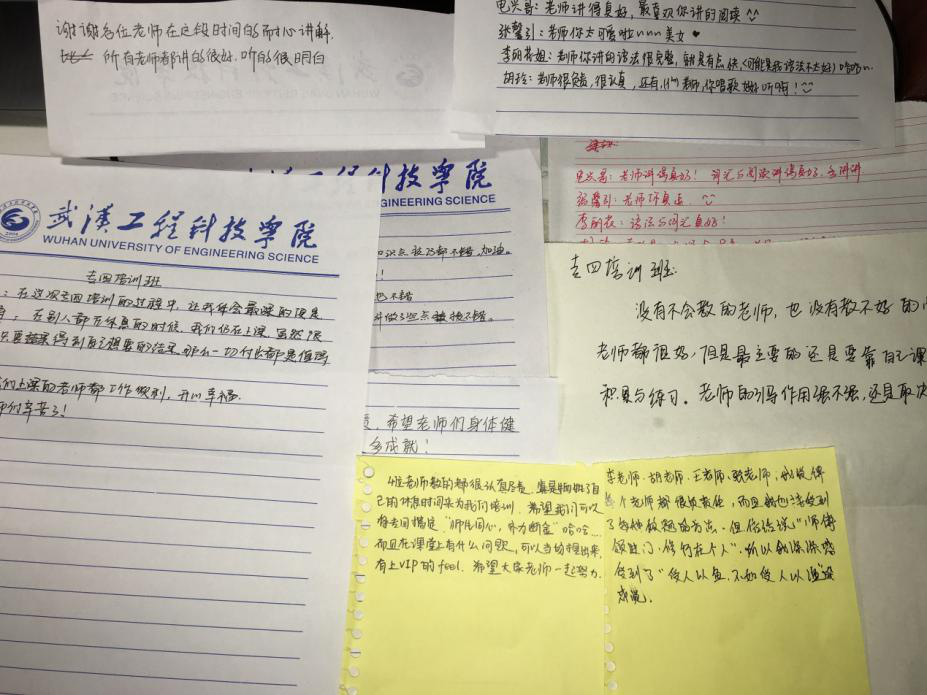 谢谢各位老师在这段时间的耐心讲解.
所有老师都讲的很好.听的很明白
老师讲得真好,最喜欢你讲的阅读
张馨引:老师你太可爱啦 美女
老师你讲的语法很完整,就是有点快
胡玲:老师很负责,很认真,还有, 老师,你唱歌 好听哦!
老师讲得真好!
张馨引:老师你真逗.
语法与 真好!
武汉工程科技学院
WUHAN UNIVERSITY OF ENGINEERING SCIENCE
科技学院
ENGINEERING SCIENCE
专四培训班
在这次专四培训的过程中,让我体会最深的便是
在别人都在休息的时候,我们仍在上课,虽然很
得到自己想要的结果,那么一切付出都是值得
们上课的老师都工作顺利,开心幸福.
师们辛苦了!
知识点 都不错,加油。
也不错
希望老师们身体健
多成就!
专四培训班:
没有不会教的老师,也没有教不好的
老师都很好,但是最主要的还是要靠自己课
积累与练习.老师的引导作用强不强,还是取决
4位老师教的都很认真负责.真是牺牲了自
己的休息时间来为我们培训.希望我们可以
"师生同心,其力断金"哈哈...
而且在课堂上有什么问题,可以当场提出来,
有上VIP的feel.希望大家老师一起努力.
李老师、胡老师、王老师、 老师,我觉得
每个老师都很负责任,而且我也 学到
了各种做题的方法.但俗话说"师傅
领进门,修行在个人".所以我深深感
受到了"授人以鱼,不如授人以渔"